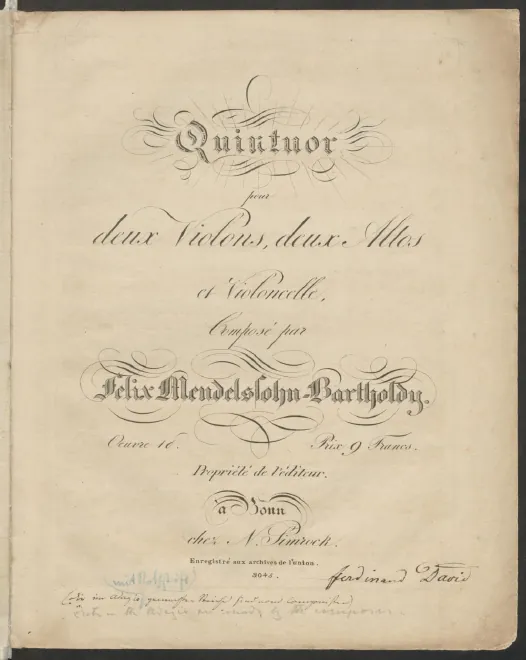 Quintuor
pour
deux Violons, deux Altos
et Violoncelle,
Composé par
Felix Mendelssohn-Bartholdy.
Oeuvre 18. Prix 9 Francs.
Propriété de l'éditeur.
à Bonn
chez N. Simrock.
Enregistré aux archives de l'union.
Ferdinand David
in the Adagio are by the composer.